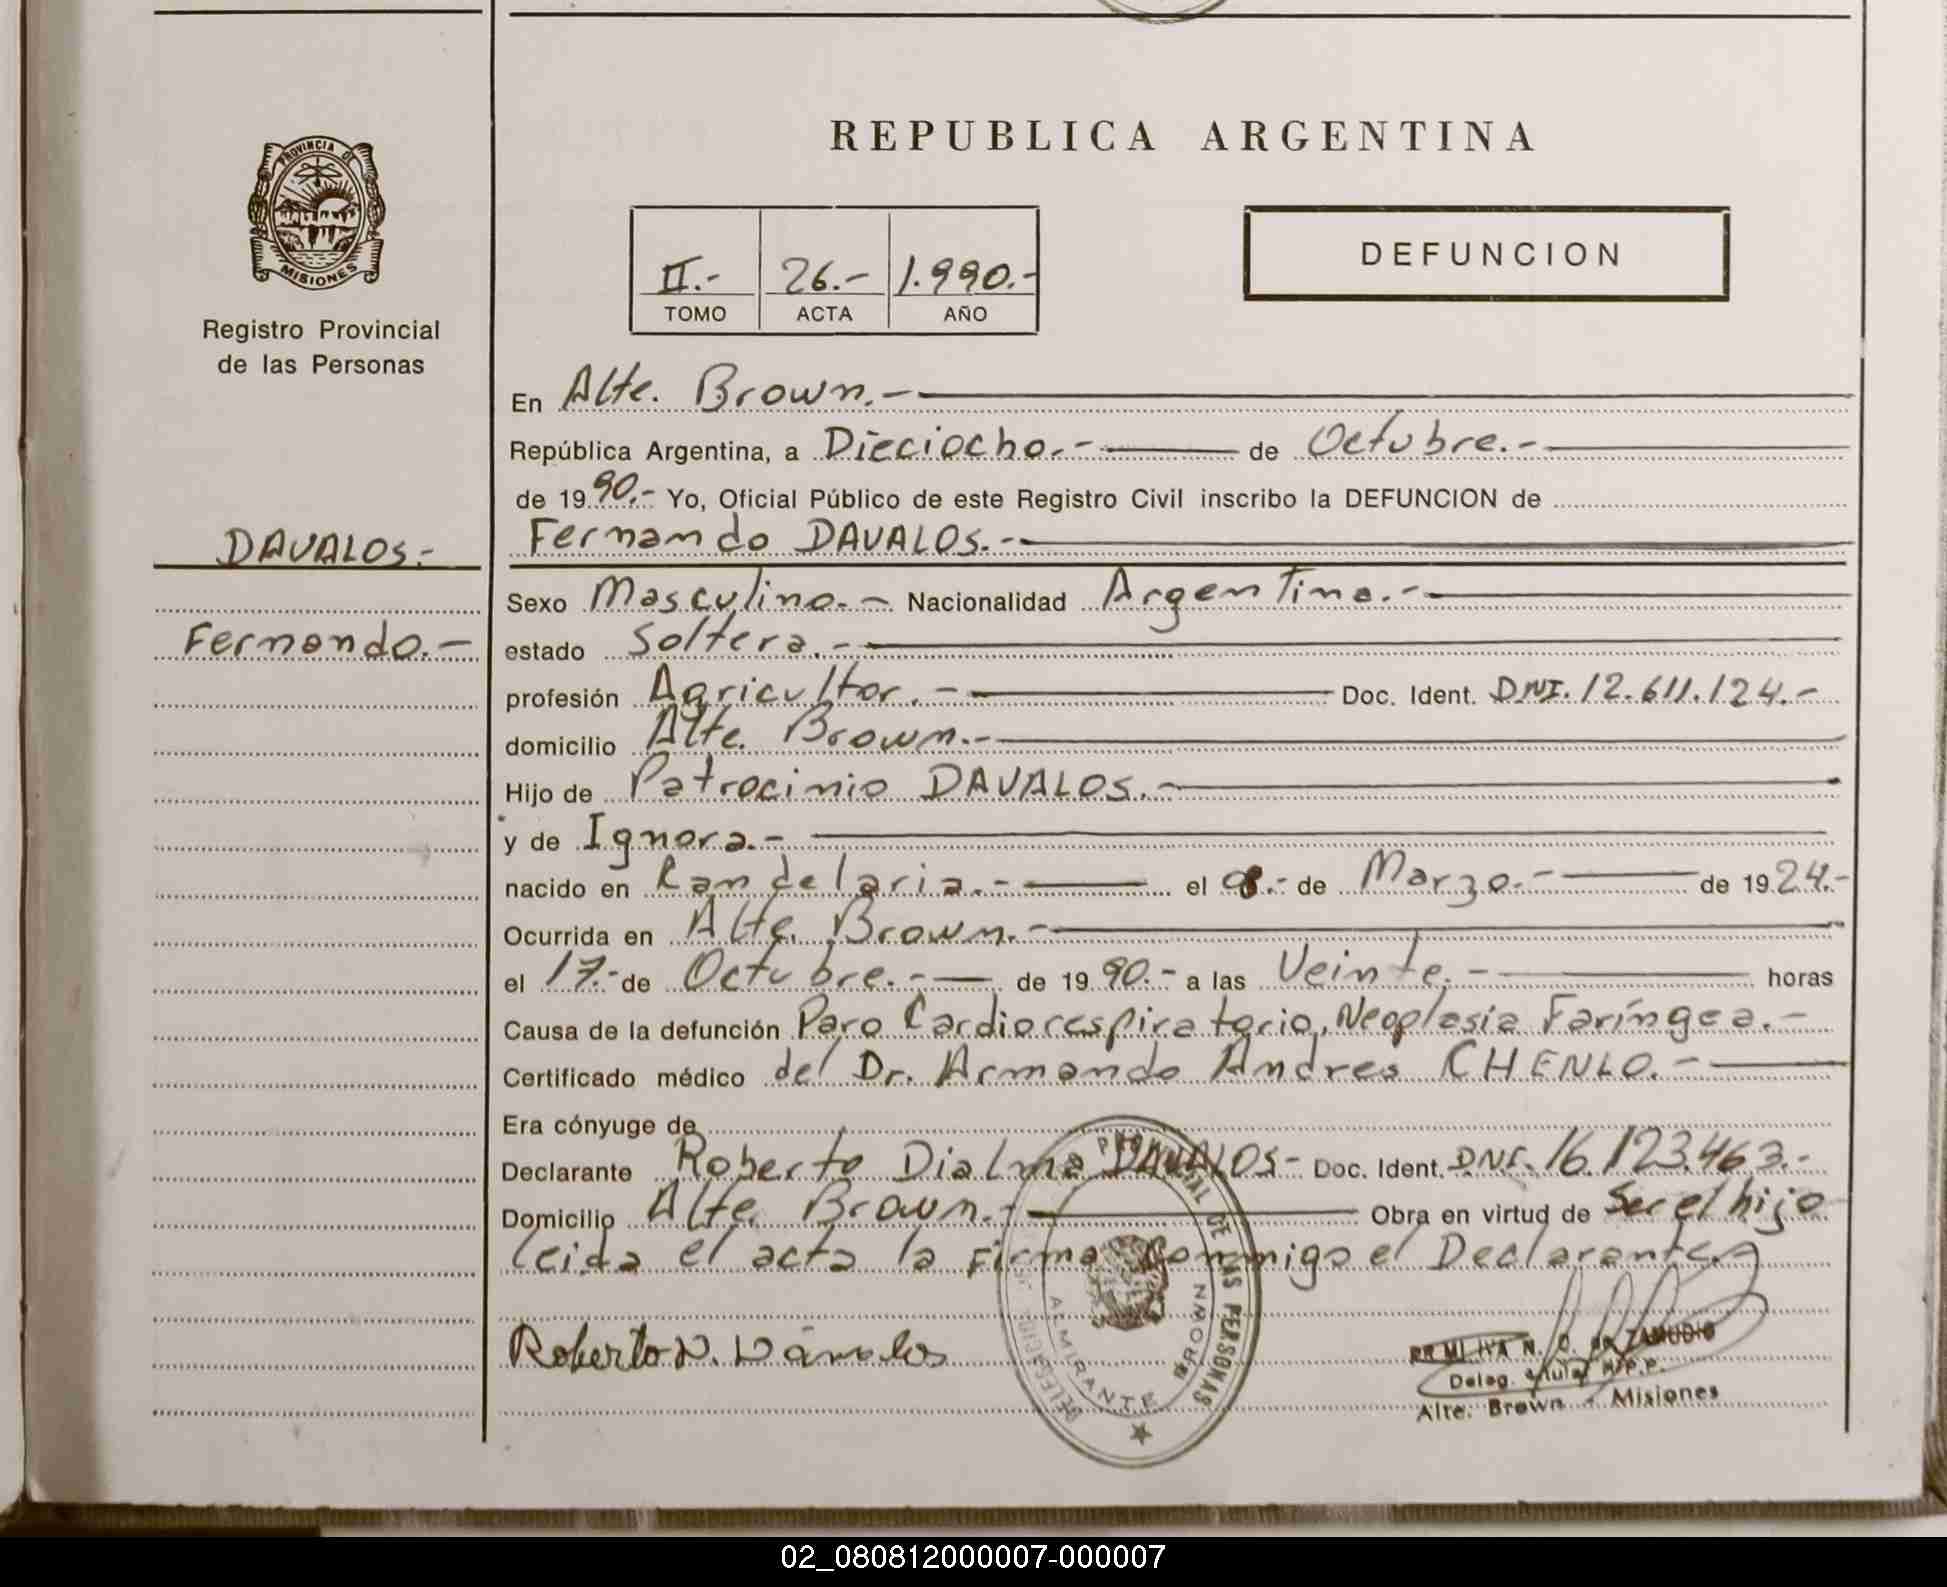 REPUBLICA ARGENTINA
PROVINCIA DE
MISIONES
Registro Provincial
de las Personas
II.- 26.- 1.990.-
TOMO ACTA AÑO
DEFUNCION
En Alte. Brown.-
República Argentina, a Dieciocho.- de Octubre.-
de 1990.- Yo, Oficial Público de este Registro Civil inscribo la DEFUNCION de
DAVALOS.-
Fernando DAVALOS.-
Sexo Masculino.- Nacionalidad Argentina.-
Fernando.-
estado Soltera.-
profesión Agricultor.- Doc. Ident. DNI. 12.611.124.-
domicilio Alte. Brown.-
Hijo de Patrocinio DAVALOS.-
y de Ignora.-
nacido en Kandelaria.- el 08.- de Marzo.- de 1924.-
Ocurrida en Alte. Brown.-
el 17.- de Octubre.- de 1990.- a las Veinte.- horas
Causa de la defunción Paro Cardiorespiratorio, Neoplasia Faríngea.-
Certificado médico del Dr. Armando Andres CHENLO.-
Era cónyuge de
Declarante Roberto Dialma DAVALOS- Doc. Ident. DNI. 16.123.463.-
Domicilio Alte. Brown.- Obra en virtud de Ser el hijo
leida el acta la firma Conmigo el Declarante.
Roberto D. Dávalos
DE LAS PERSONAS
ALMIRANTE BROWN
N. O. de ZAMUDIO
Deleg. R.P.P.
Alte. Brown - Misiones
02_080812000007-000007